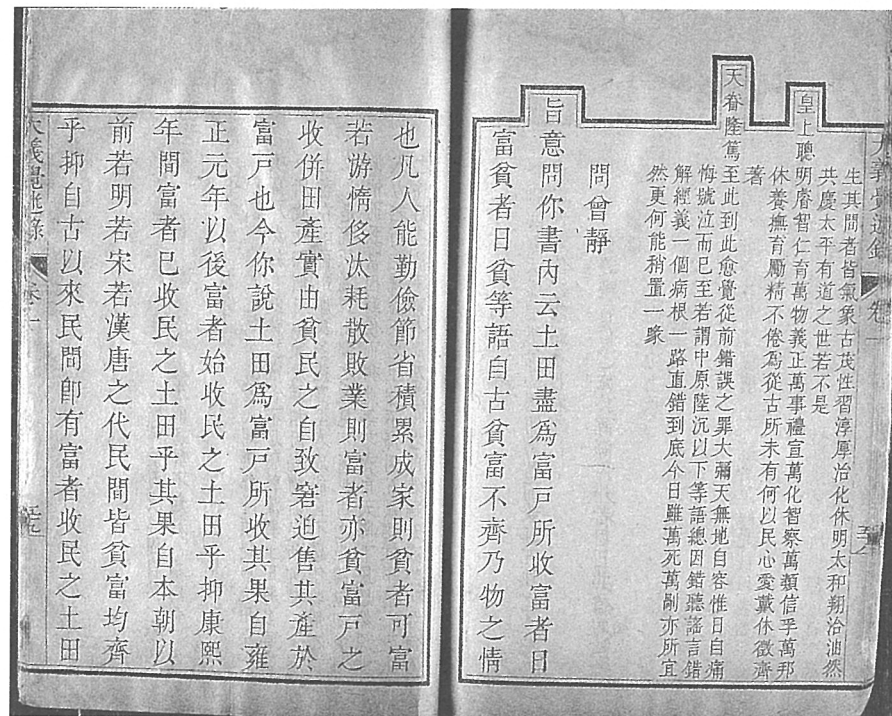 大義覺迷錄
卷一
生其間者皆氣象古茂性習淳厚治化休明太和翔洽油然
共慶太平有道之世若不是
皇上聰明睿智仁育萬物義正萬事禮宣萬化智察萬類信孚萬邦
休養撫育勵精不倦為從古所未有何以民心愛戴休徵齊
著
天眷隆篤至此到此愈覺從前錯誤之罪大彌天無地自容惟日自痛
悔號泣而已至若謂中原陸沉以下等語總因錯聽謠言錯
解經義一個病根一路直錯到底今日雖萬死萬剮亦所宜
然更何能稍置一喙
問曾靜
旨意問你書內云土田盡為富戶所收富者日
富貧者日貧等語自古貧富不齊乃物之情
也凡人能勤儉節省積累成家則貧者可富
若游惰侈汰耗散敗業則富者亦貧富戶之
收併田產實由貧民之自致窘迫售其產於
富戶也今你說土田為富戶所收其果自雍
正元年以後富者始收民之土田乎抑康熙
年間富者已收民之土田乎其果自本朝以
前若明若宋若漢唐之代民間皆貧富均齊
乎抑自古以來民間卽有富者收民之土田
大義覺迷錄
卷一